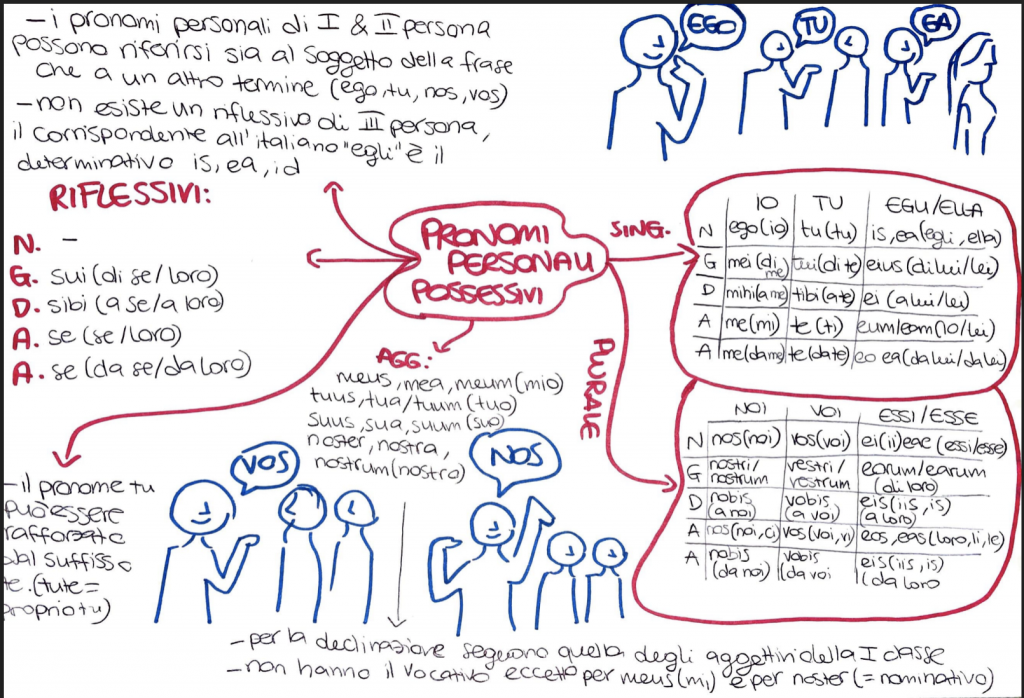 – i pronomi personali di I & II persona
possono riferirsi sia al soggetto della frase
che a un altro termine (ego, tu, nos, vos)
– non esiste un riflessivo di III persona,
il corrispondente all'italiano "egli" è il
determinativo is, ea, id
EGO
TU
EA
RIFLESSIVI:
N. –
G. sui (di se/loro)
D. sibi (a se/a loro)
A. se (se/loro)
A. se (da se/da loro)
PRONOMI
PERSONALI
POSSESSIVI
SING.
IO TU EGLI/ELLA
N ego (io) tu (tu) is, ea (egli, ella)
G mei (di me) tui (di te) eius (di lui/lei)
D mihi (a me) tibi (a te) ei (a lui/lei)
A me (mi) te (ti) eum/eam (lo/lei)
A me (da me) te (da te) eo ea (da lui/da lei)
PLURALE
NOI VOI ESSI/ESSE
N nos (noi) vos (voi) ei (ii) eae (essi/esse)
G nostri/ nostrum vestri/ vostrum earum/earum (di loro)
D nobis (a noi) vobis (a voi) eis (iis, is) (a loro)
A nos (noi, ci) vos (voi, vi) eos, eas (loro, li, le)
A nobis (da noi) vobis (da voi eis (iis, is) (da loro
AGG:
meus, mea, meum (mio)
tuus, tua/tuum (tuo)
suus, sua, suum (suo)
noster, nostra,
nostrum (nostra)
VOS
NOS
– il pronome tu
può essere
rafforzato
dal suffisso
te. (tute =
propriotu)
– per la declinazione seguono quella degli aggettivi della I classe
– non hanno il vocativo eccetto per meus (mi) e per noster (= nominativo)